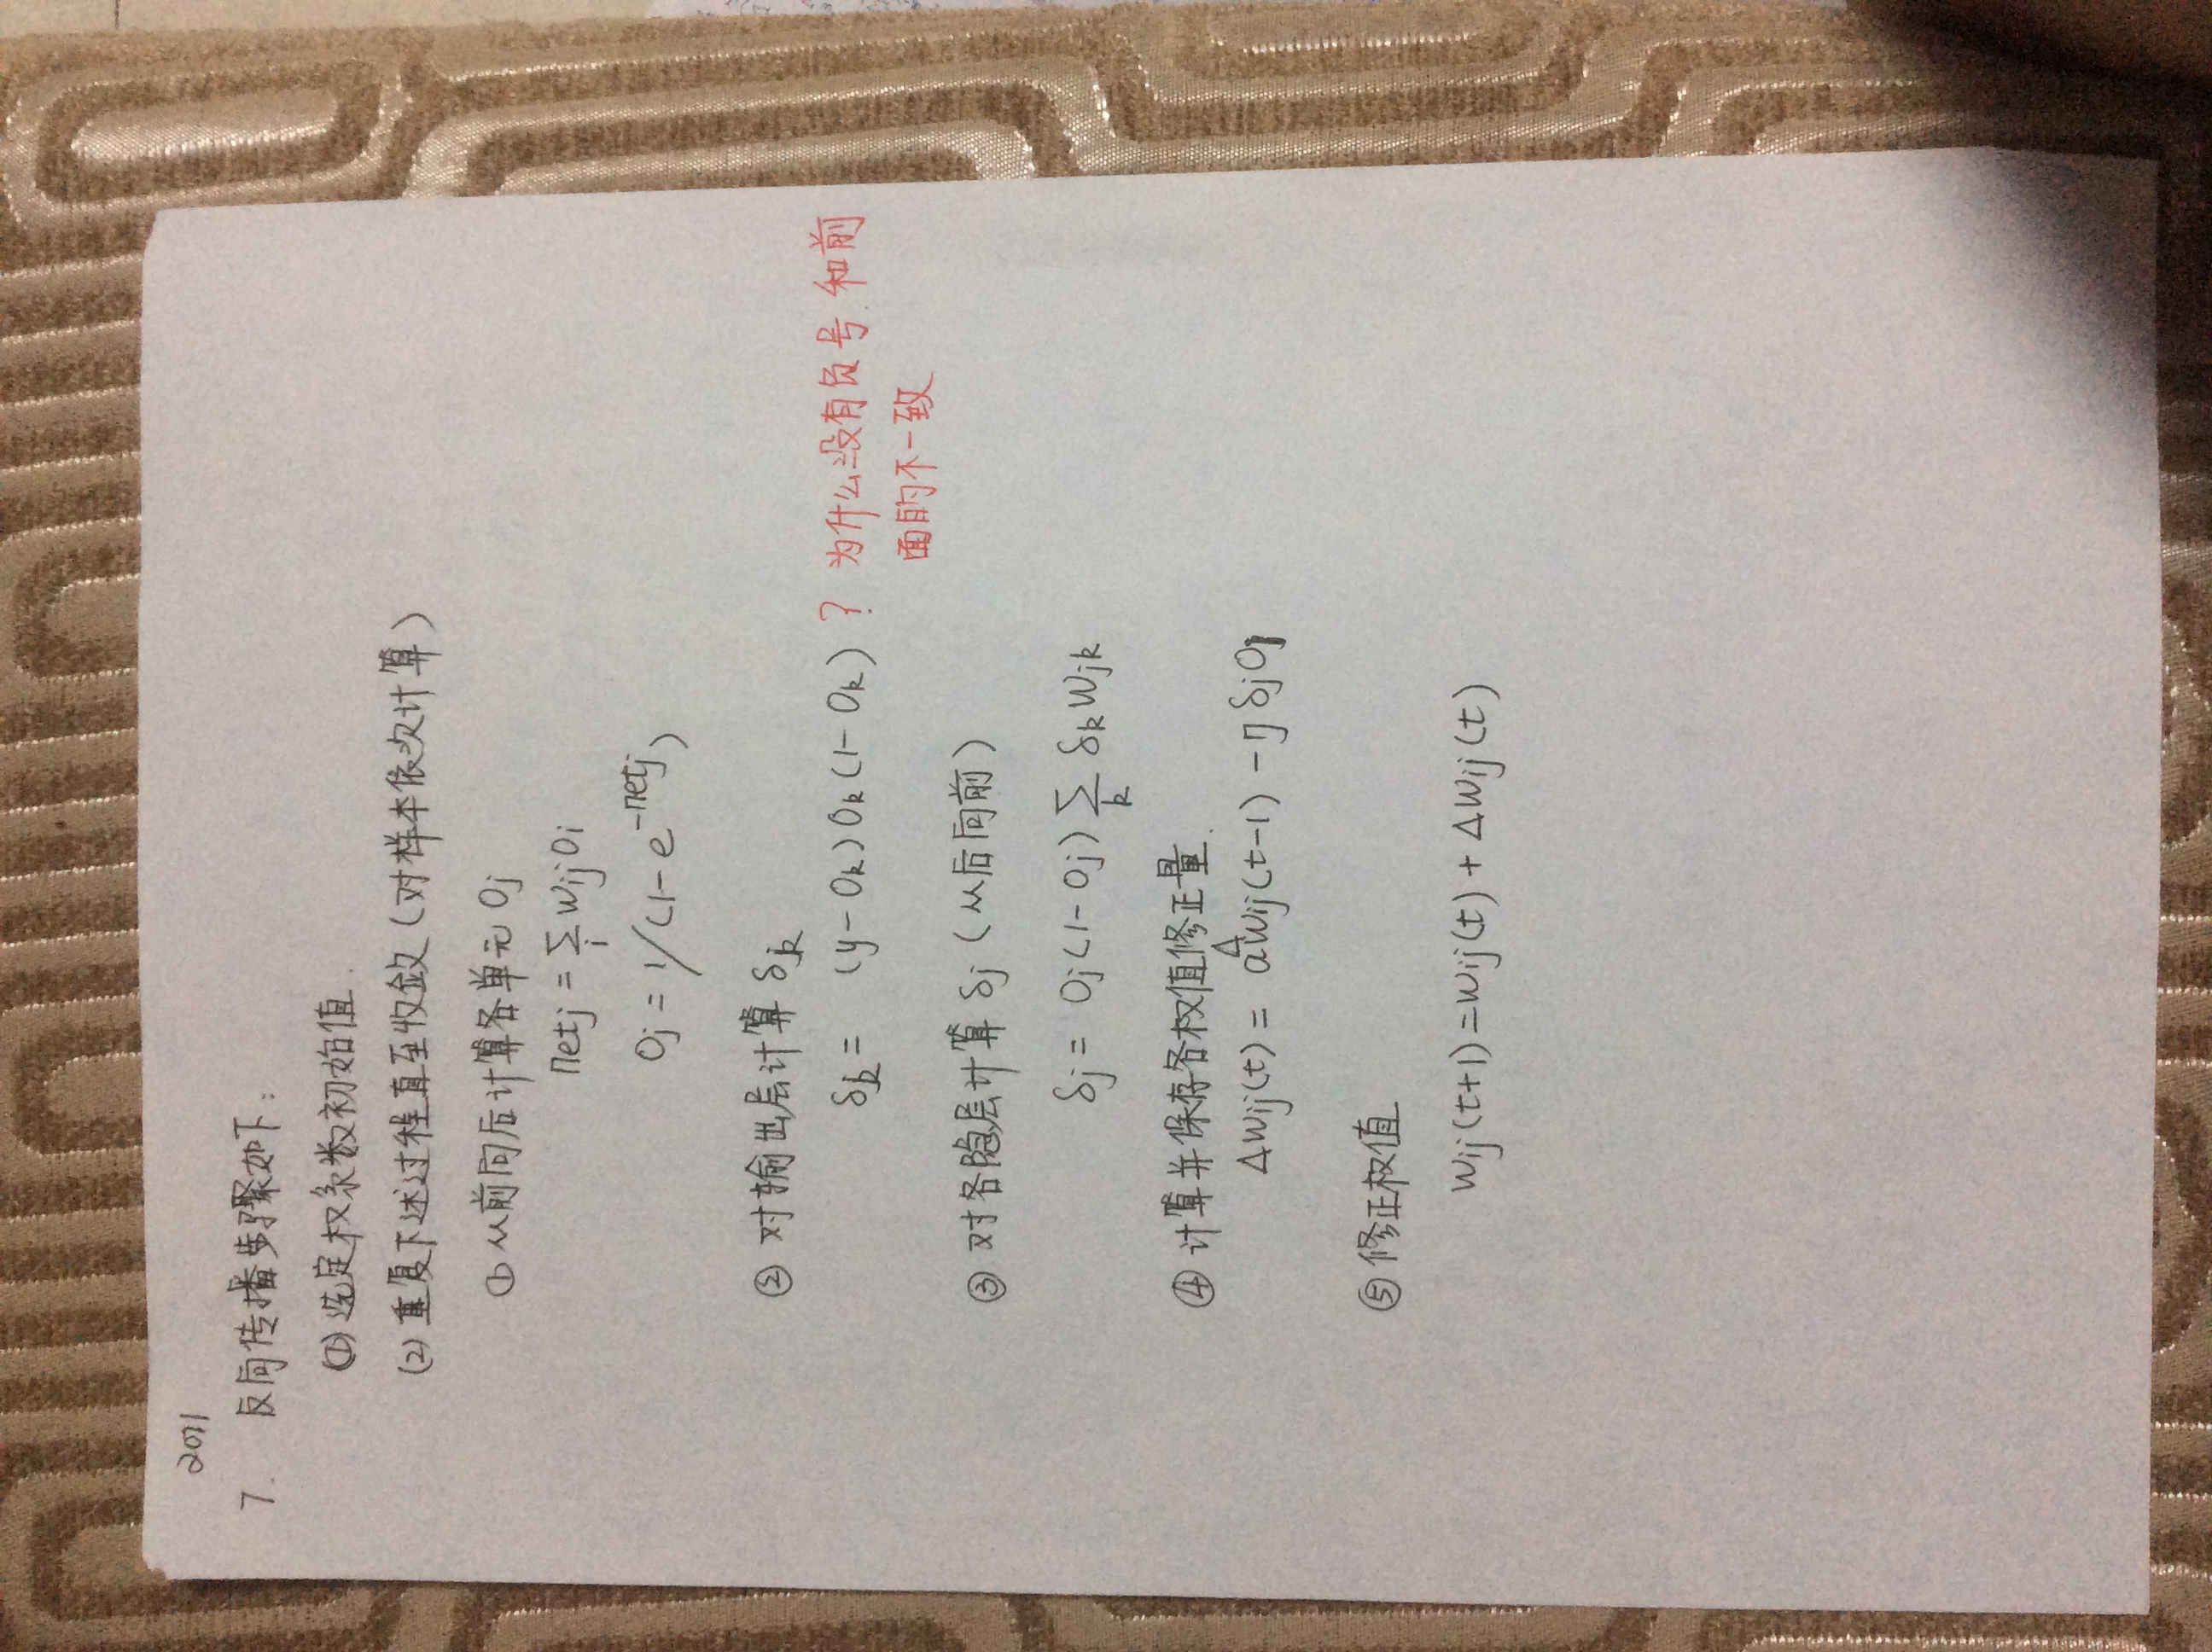 2011
7. 反向传播步骤如下:
(1) 选定权系数初始值.
(2) 重复下述过程直至收敛(对样本依次计算)
① 从前向后计算各单元 Oj
netj = ∑i wijOi
Oj = 1/(1-e^-netj)
② 对输出层计算 δk
δk = (y-Ok)Ok(1-Ok) ? 为什么没有负号.和前
面的不一致
③ 对各隐层计算 δj (从后向前)
δj = Oj(1-Oj)∑k δkWjk
④ 计算并保存各权值修正量.
ΔWij(t) = aΔWij(t-1) - ηδjOj
⑤ 修正权值
Wij(t+1)=Wij(t)+ΔWij(t)